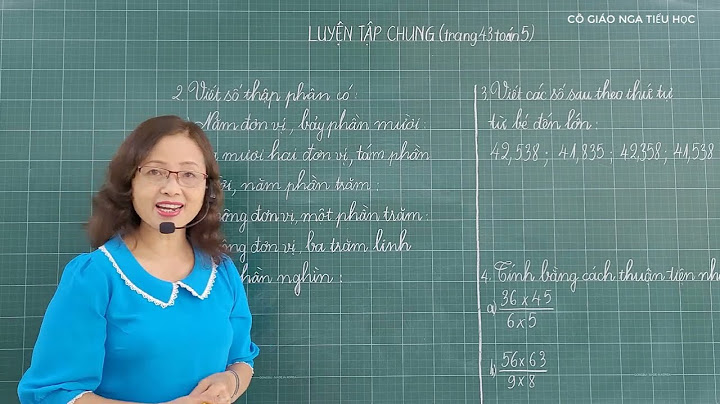 CÔ GIÁO NGA TIỂU HỌC
LUYỆN TẬP CHUNG (trang 43 toán 5)
2. Viết số thập phân có:
Năm đơn vị, bảy phần mười:
mươi hai đơn vị, tám phần
năm phần trăm:
đơn vị, một phần trăm:
đơn vị ba trăm linh
nghìn:
3. Viết các số sau theo thứ tự
từ bé đến lớn:
42,538; 41,835; 42,358; 41,538
4. Tính bằng cách thuận tiện
a) 36 x 45
6 x 5
b) 56 x 63
9 x 8